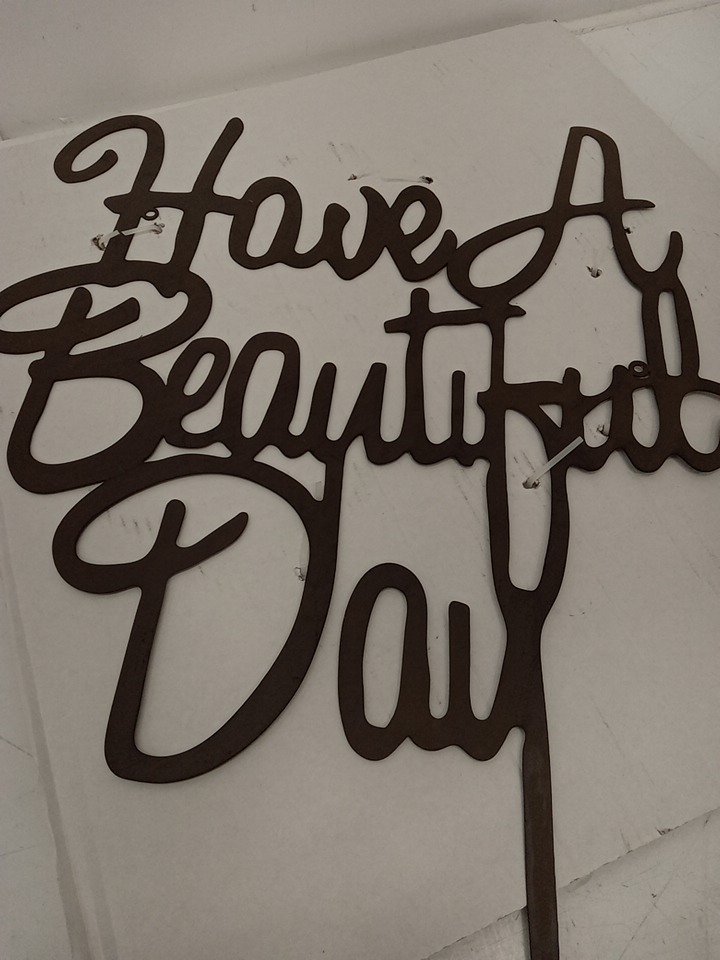 Have A
Beautiful
Day